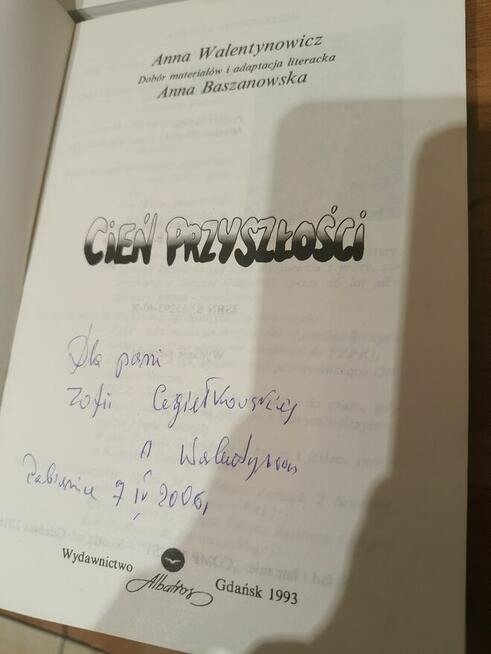 Anna Walentynowicz
Dobór materiałów i adaptacja literacka
Anna Baszanowska
CIEŃ PRZYSZŁOŚCI
Dla pani
Zofii Cegiełkowskiej
A Walentynowicz
Pabianice 7 IV 2006,
Wydawnictwo
Albatros
Gdańsk 1993